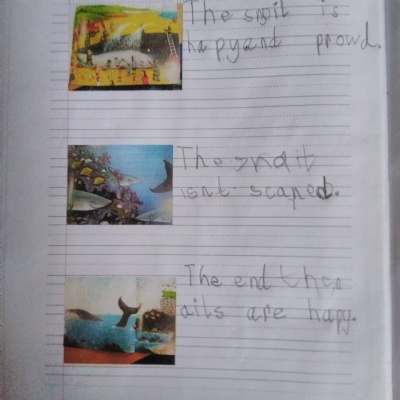 The snail is
hapyand prowd.
The snail
isnt scared.
The end then
ails are hapy.